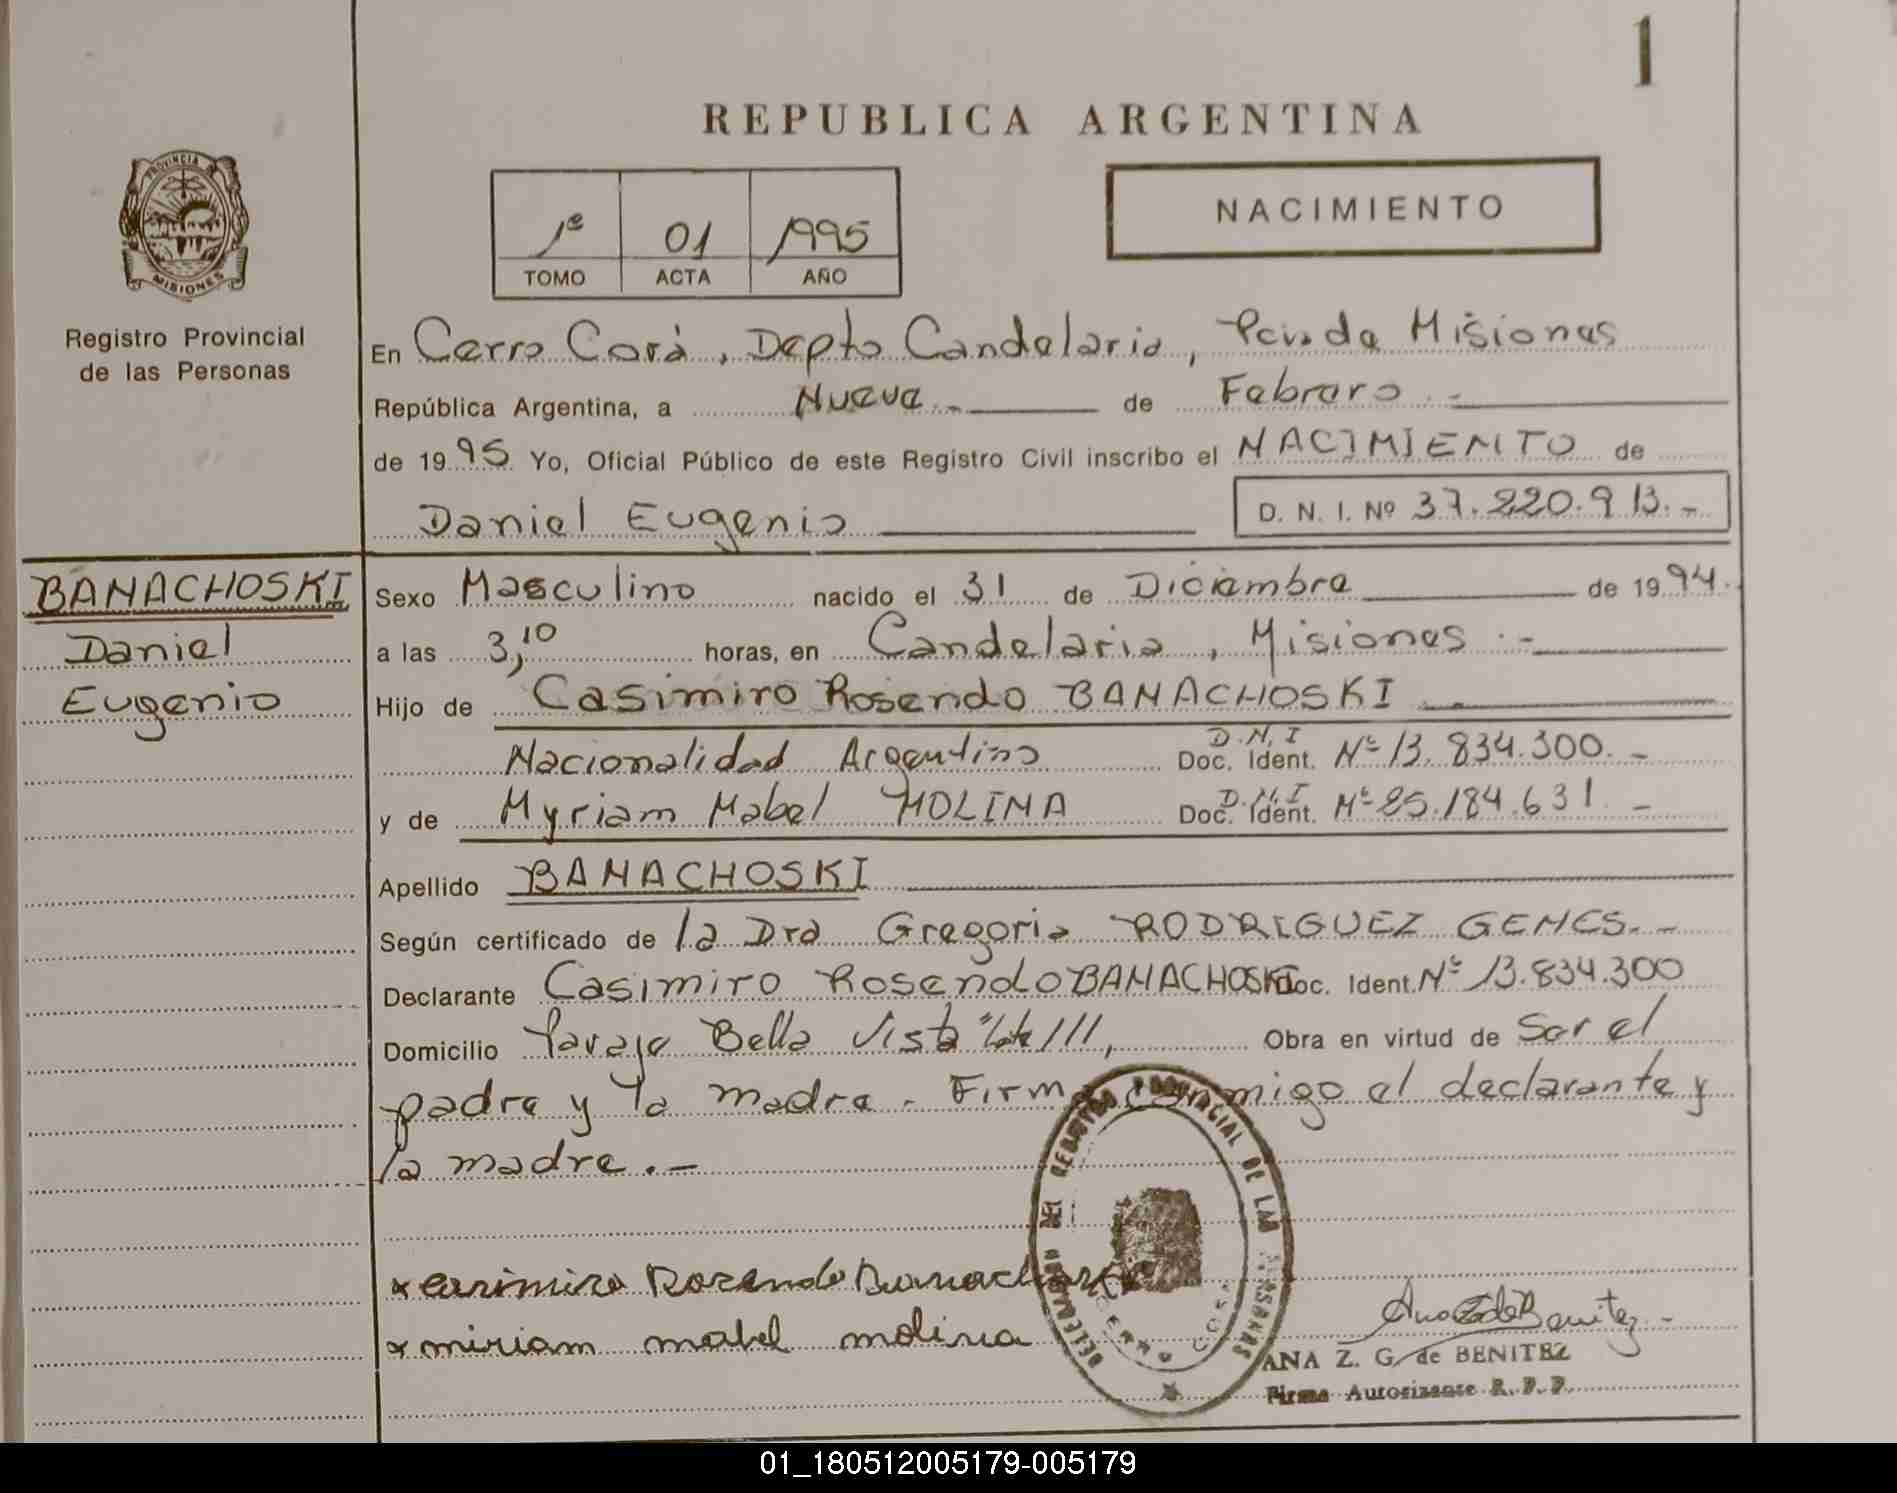 1
REPUBLICA ARGENTINA
PROVINCIA
MISIONES
Registro Provincial
de las Personas
1º 01 1995
TOMO ACTA AÑO
NACIMIENTO
En Cerro Corá, Depto Candelaria, Pcia de Misiones
República Argentina, a Nueve.- de Febrero.-
de 1995 Yo, Oficial Público de este Registro Civil inscribo el NACIMIENTO de
Daniel Eugenio D. N. I. Nº 37.220.913.-
BANACHOSKI
Daniel
Eugenio
Sexo Masculino nacido el 31 de Diciembre de 1994.
a las 3,10 horas, en Candelaria, Misiones.-
Hijo de Casimiro Rosendo BANACHOSKI
Nacionalidad Argentino D.N.I Doc. Ident. Nº 13.834.300.-
y de Myriam Mabel MOLINA D.N.I Doc. Ident. Nº 25.184.631.-
Apellido BANACHOSKI
Según certificado de la Dra Gregoria RODRIGUEZ GEMES.-
Declarante Casimiro Rosendo BANACHOSKI Doc. Ident. Nº 13.834.300
Domicilio Paraje Bella Vista "Lote 111, Obra en virtud de Ser el
padre y la madre. Firma conmigo el declarante y
la madre.-
DELEGADA DEL REGISTRO PROVINCIAL DE LAS PERSONAS
CERRO CORA
x Casimiro Rosendo Banachoski
x miriam mabel molina
Ana Z G de Benitez
ANA Z. G. de BENITEZ
Firma Autorizante R. P. P.
01_180512005179-005179